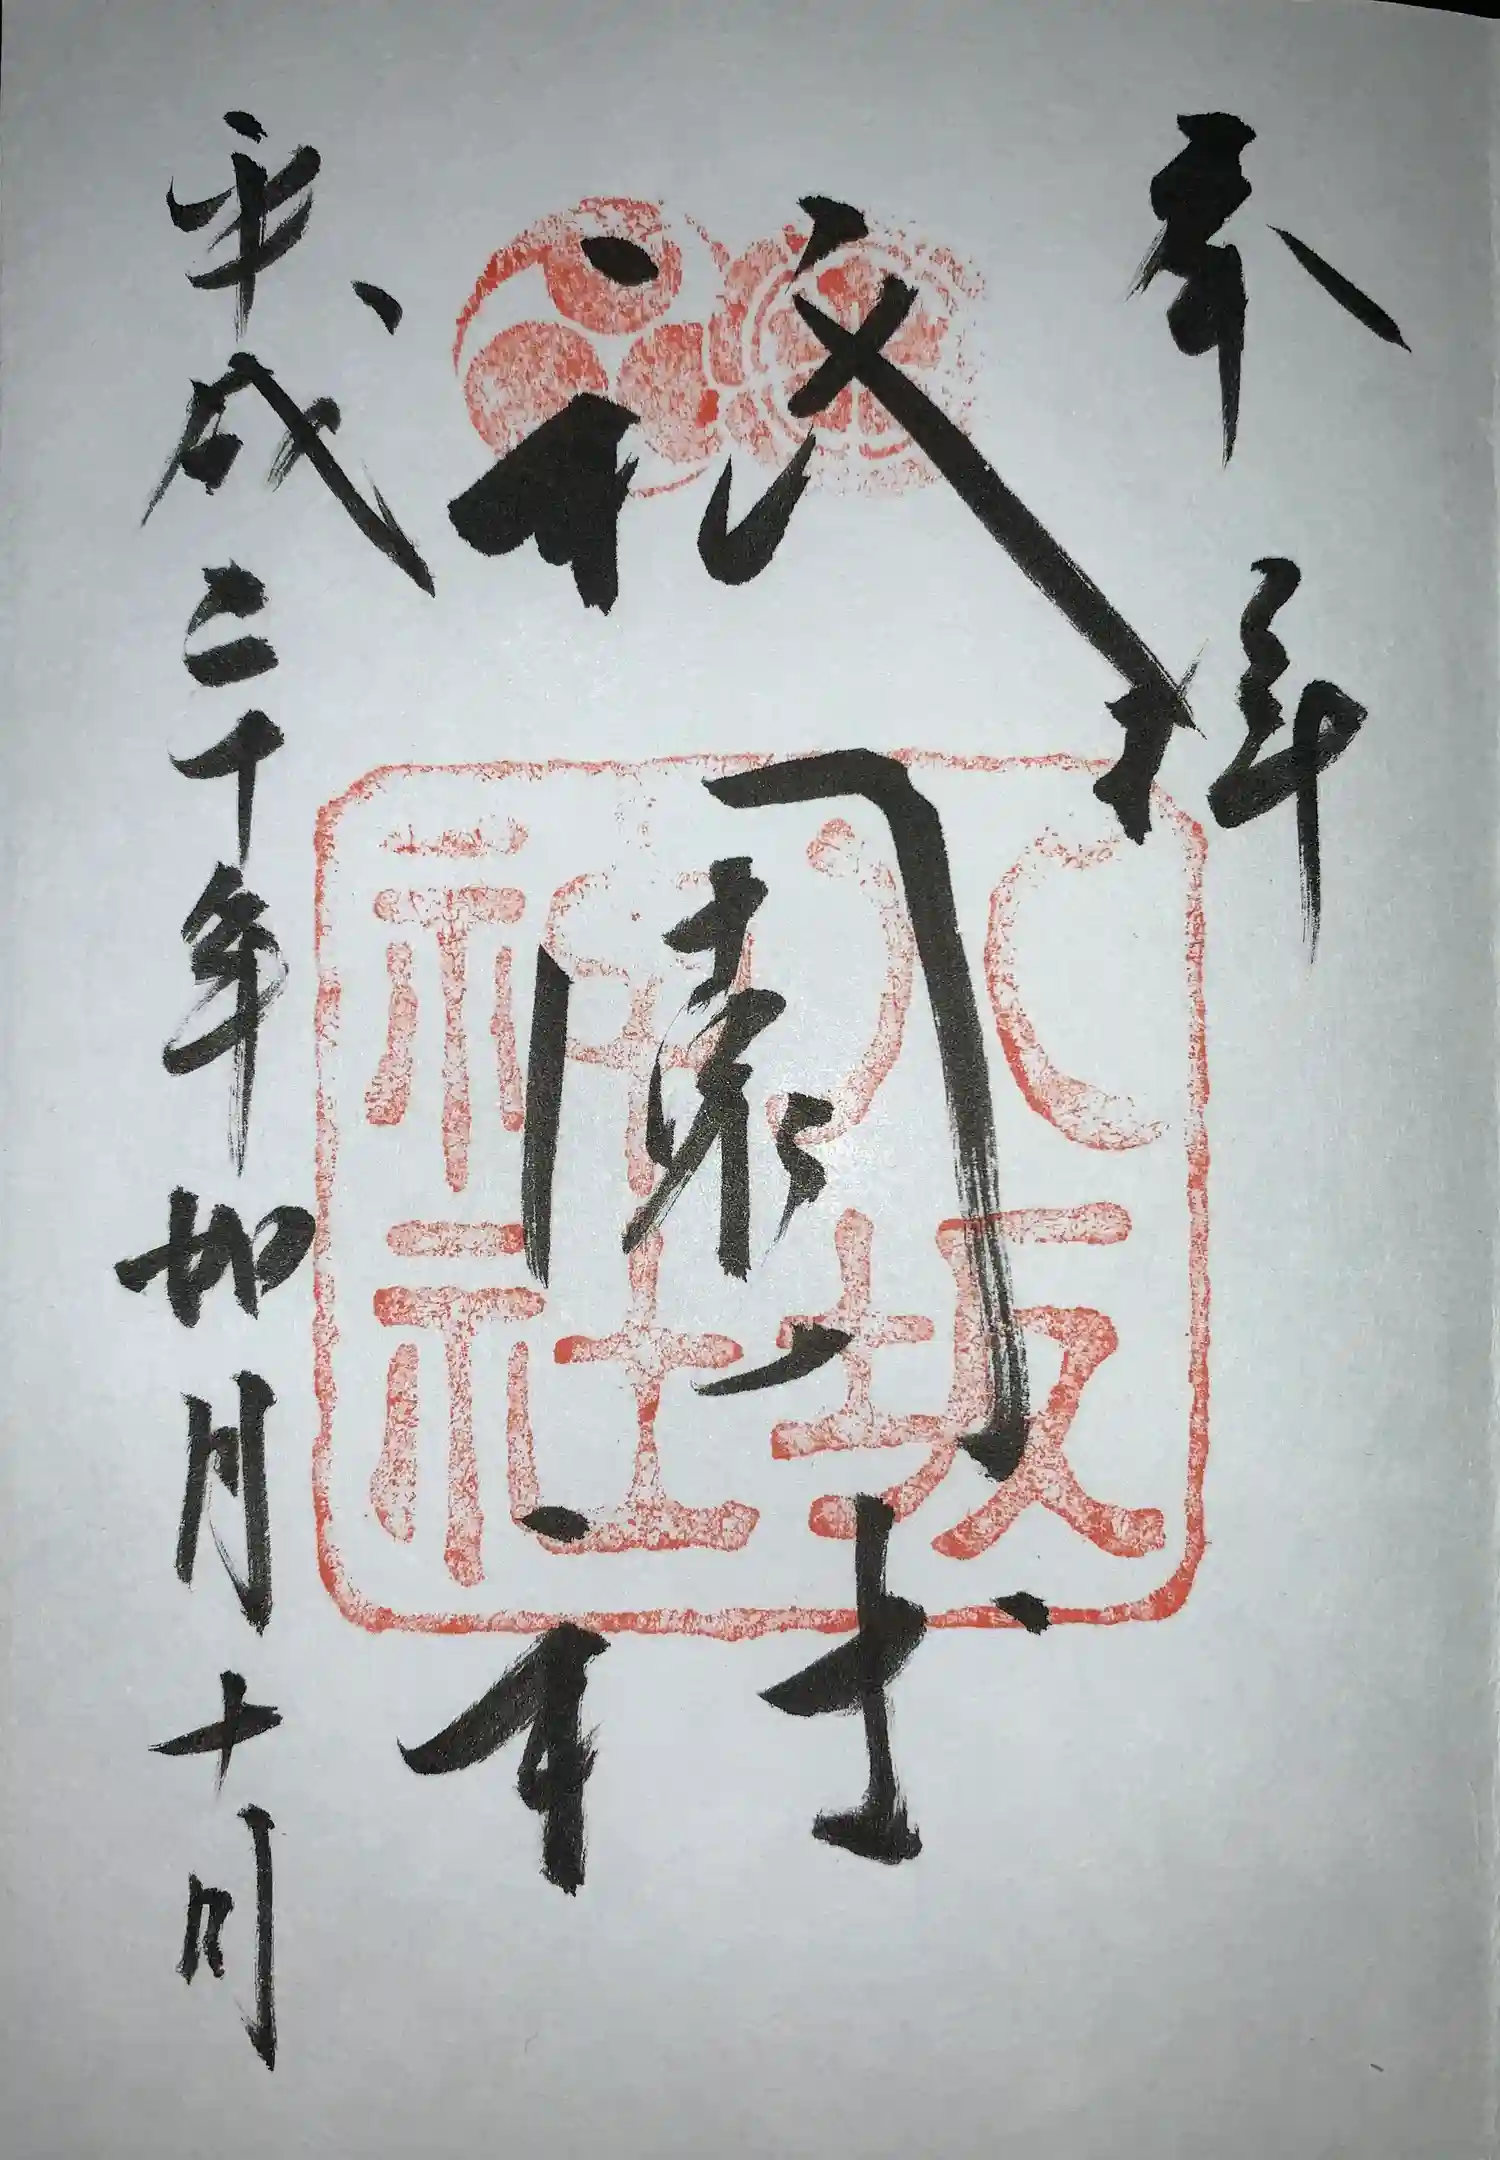 奉拝
祇園社
八坂
神社
平成二十年如月十日